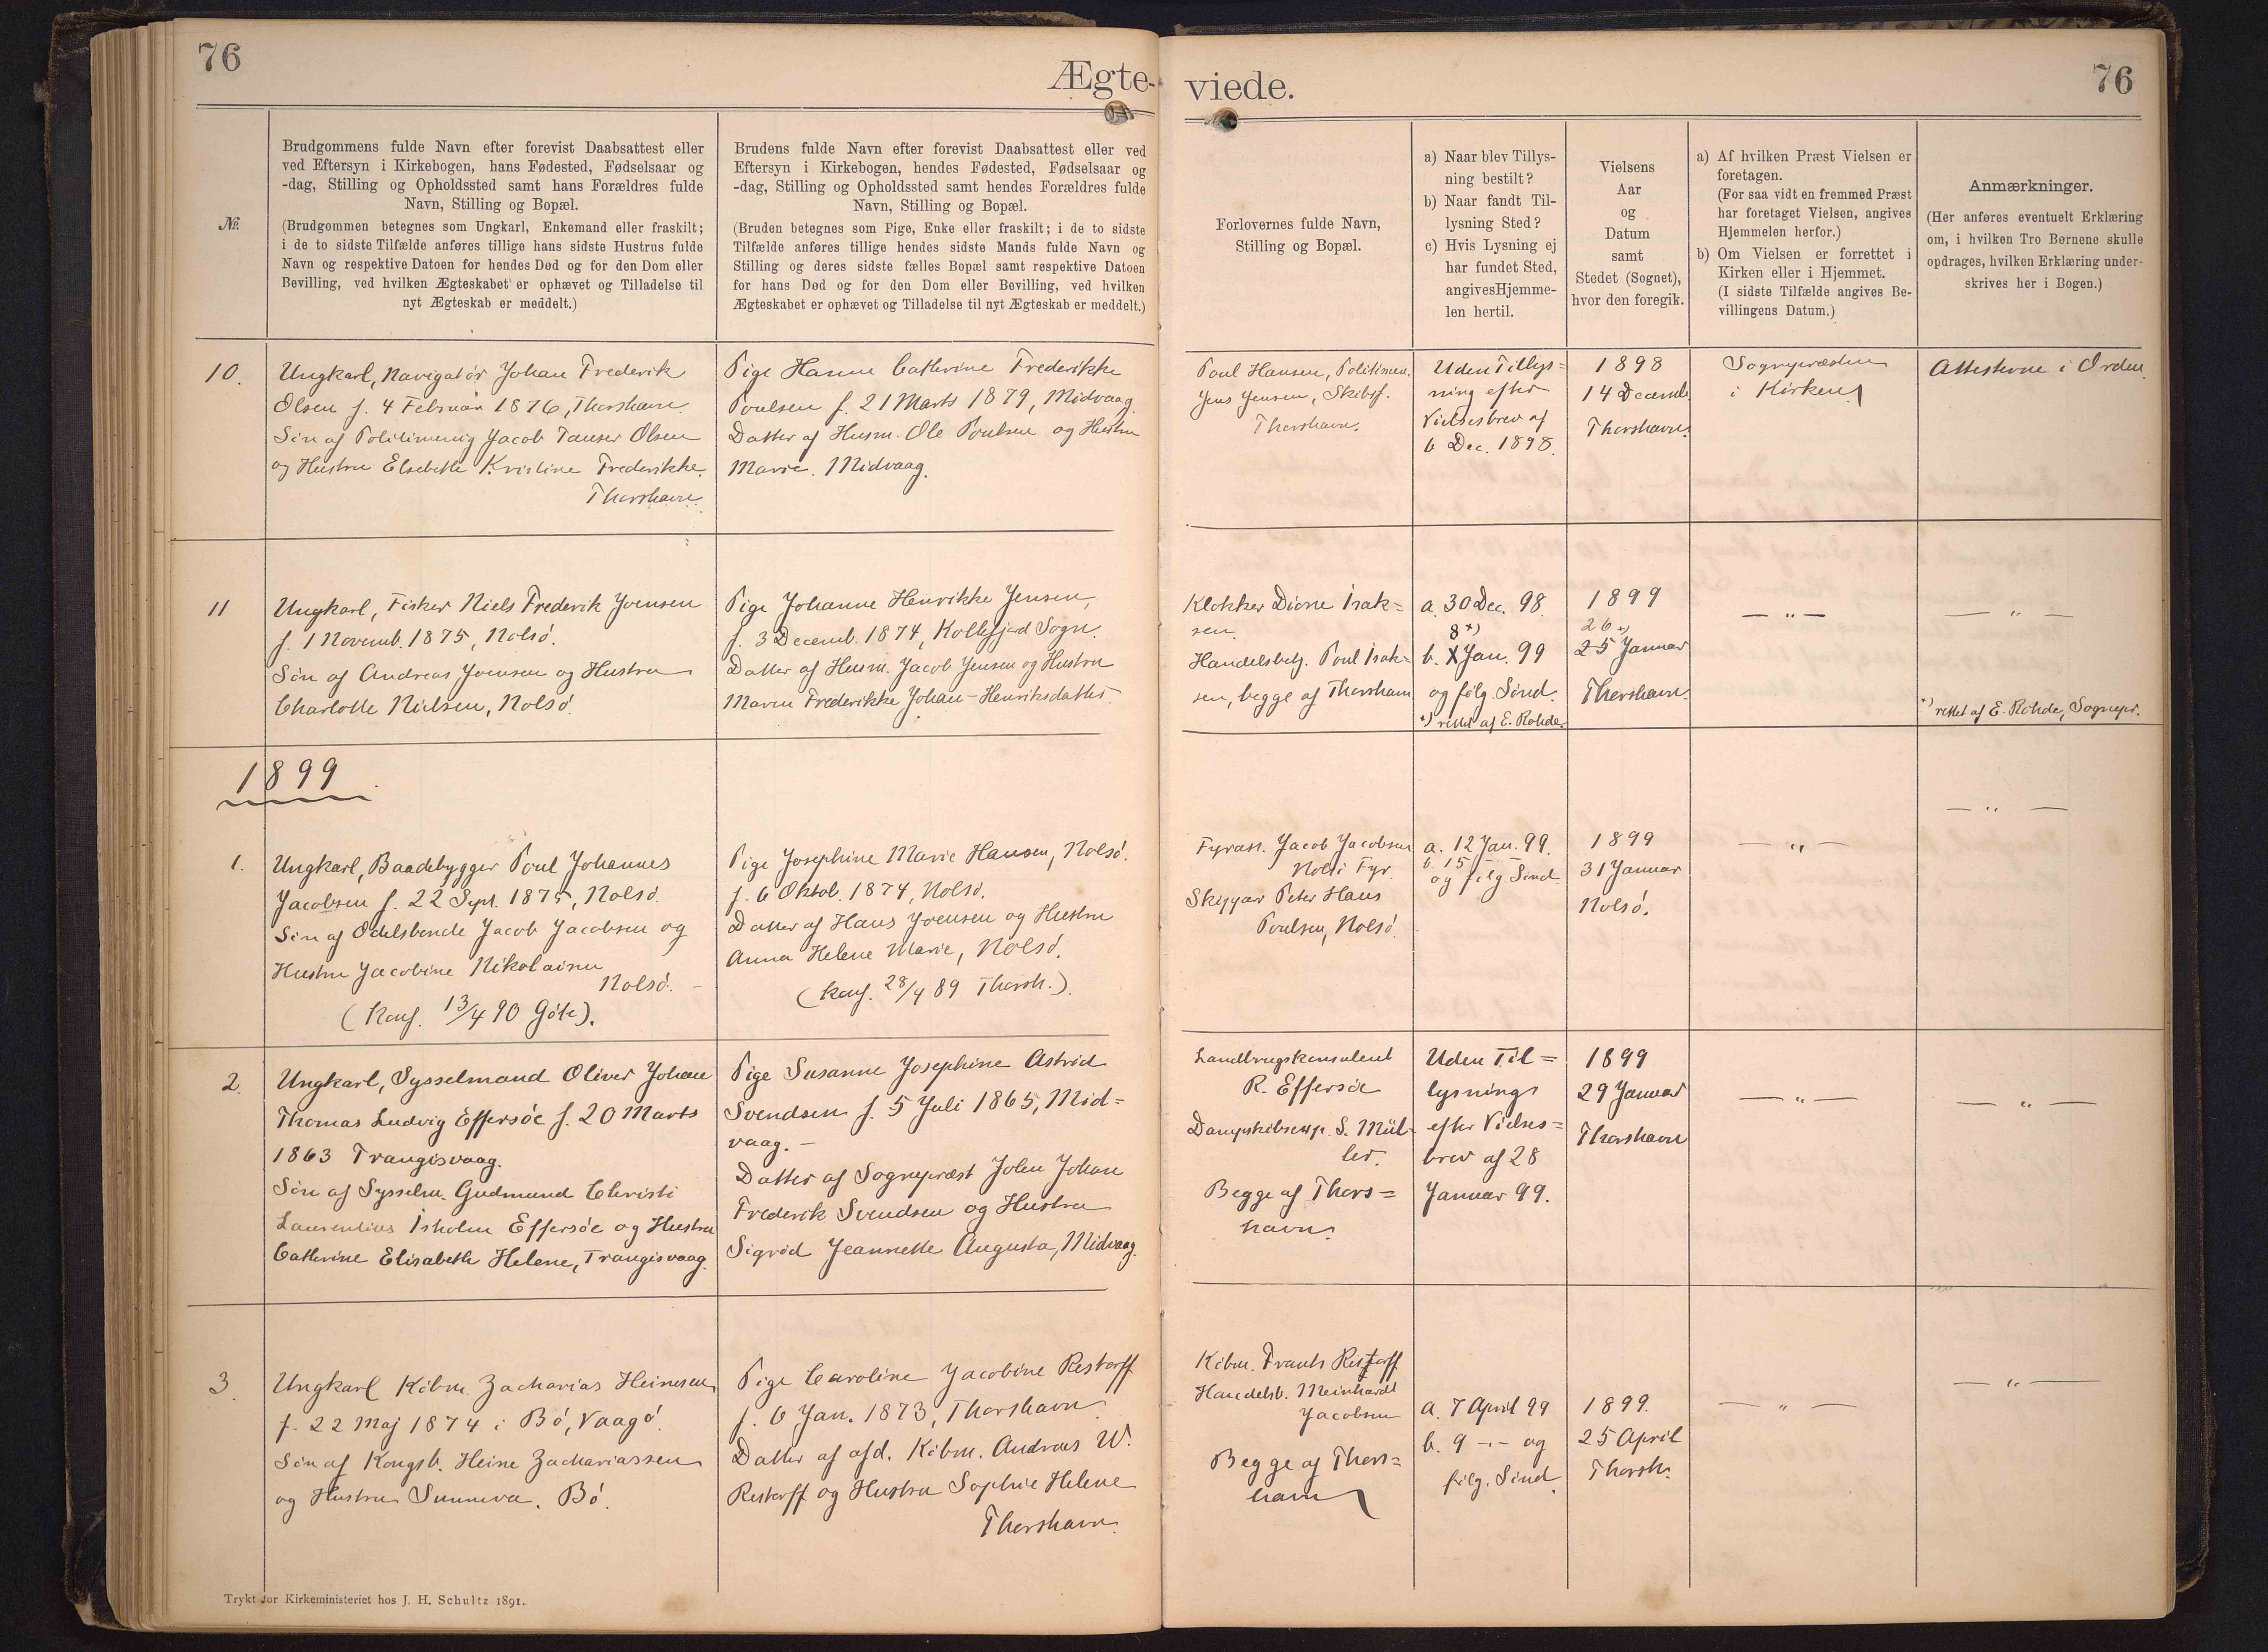 76
Ægte-
viede.
76
№.
Brudgommens fulde Navn efter forevist Daabsattest eller
ved Eftersyn i Kirkebogen, hans Fødested, Fødselsaar og
-dag, Stilling og Opholdssted samt hans Forældres fulde
Navn, Stilling og Bopæl.
(Brudgommen betegnes som Ungkarl, Enkemand eller fraskilt;
i de to sidste Tilfælde anføres tillige hans sidste Hustrus fulde
Navn og respektive Datoen for hendes Død og for den Dom eller
Bevilling, ved hvilken Ægteskabet er ophævet og Tilladelse til
nyt Ægteskab er meddelt.)
Brudens fulde Navn efter forevist Daabsattest eller ved
Eftersyn i Kirkebogen, hendes Fødested, Fødselsaar og
-dag, Stilling og Opholdssted samt hendes Forældres fulde
Navn, Stilling og Bopæl.
(Bruden betegnes som Pige, Enke eller fraskilt; i de to sidste
Tilfælde anføres tillige hendes sidste Mands fulde Navn og
Stilling og deres sidste fælles Bopæl samt respektive Datoen
for hans Død og for den Dom eller Bevilling, ved hvilken
Ægteskabet er ophævet og Tilladelse til nyt Ægteskab er meddelt.)
Forlovernes fulde Navn,
Stilling og Bopæl.
a) Naar blev Tillys-
ning bestilt?
b) Naar fandt Til-
lysning Sted?
c) Hvis Lysning ej
har fundet Sted,
angives Hjemme-
len hertil.
Vielsens
Aar
og
Datum
samt
Stedet (Sognet),
hvor den foregik.
a) Af hvilken Præst Vielsen er
foretagen.
(For saa vidt en fremmed Præst
har foretaget Vielsen, angives
Hjemmelen herfor.)
b) Om Vielsen er forrettet i
Kirken eller i Hjemmet.
(I sidste Tilfælde angives Be-
villingens Datum.)
Anmærkninger.
(Her anføres eventuelt Erklæring
om, i hvilken Tro Børnene skulle
opdrages, hvilken Erklæring under-
skrives her i Bogen.)
10.
Ungkarl, Navigatør Johan Frederik
Olsen f. 4 Februar 1876, Thorshavn.
Søn af Politimenig Jacob Olsen
og Hustru Elsebeth Kristine Frederikke.
Thorshavn
Pige Hanne Cathrine Frederikke
Poulsen f. 21 Marts 1879, Midvaag
Datter af Husm. Ole Poulsen og Hustru
Marie. Midvaag.
Poul Hansen, Politimen.
Jens Jensen, Skibsf.
Thorshavn.
Uden Tillys=
ning efter
Vielsesbrev af
6 Dec. 1898.
1898
14 Decemb.
Thorshavn.
Sognepræsten
i Kirken
Attesterne i Orden.
11
Ungkarl, Fisker Niels Frederik Joensen
f. 1 Novemb. 1875, Nolsø.
Søn af Andreas Joensen og Hustru
Charlotte Nielsen, Nolsø
Pige Johanne Henrikke Jensen,
f. 3 Decemb. 1874, Kollefjord Sogn.
Datter af Husm. Jacob Jensen og Hustru
Maren Frederikke Johan-Henriksdatter
Klokker Dione Isak=
sen.
Handelsbetj. Poul Isak=
sen, begge af Thorshavn
a. 30 Dec. 98.
8 *)
b. X Jan. 99
og følg. Sønd.
*) rettet af E. Rohde.
1899
26 *)
25 Januar
Thorshavn.
— " —
— " —
*) rettet af E. Rohde, Sognepr.
1899
1.
Ungkarl, Baadebygger Poul Johannes
Jacobsen f. 22 Sept. 1875, Nolsø.
Søn af Odelsbonde Jacob Jacobsen og
Hustru Jacobine Nikolaisen
Nolsø. -
(Konf. 13/4 90 Göte).
Pige Josephine Marie Hansen, Nolsø.
f. 6 Oktob. 1874, Nolsø.
Datter af Hans Joensen og Hustru
Anna Helene Marie, Nolsø.
(Konf. 28/4 89 Thorsh.).
Fyrass. Jacob Jacobsen
Nolsø Fyr.
Skipper Peter Hans
Poulsen, Nolsø
a. 12 Jan. 99.
b. 15 - -
og følg Sønd
1899
31 Januar
Nolsø.
— " —
— " —
2.
Ungkarl, Sysselmand Oliver Johan
Thomas Ludvig Effersøe f. 20 Marts
1863 Trangisvaag.
Søn af Sysselm. Gudmund Christi
Laurentius Isholm Effersøe og Hustru
Cathrine Elisabeth Helene, Trangisvaag.
Pige Susanne Josephine Astrid
Svendsen f. 5 Juli 1865, Mid=
vaag. -
Datter af Sognepræst John Johan
Frederik Svendsen og Hustru
Sigrød Jeannette Augusta, Midvaag.
Landbrugskonsulent
R. Effersøe
Dampskibsexp. S. Mül-
ler.
Begge af Thors=
havn.
Uden Til=
lysning
efter Vielses=
brev af 28
Januar 99.
1899
29 Januar
Thorshavn
— " —
— " —
3.
Ungkarl Købm. Zacharias Heinesen
f. 22 Maj 1874 i Bø, Vaagø.
Søn af Kongsb. Heine Zachariassen
og Hustru Sunneva. Bø.
Pige Caroline Jacobine Restorff
f. 6 Jan. 1873, Thorshavn.
Datter af afd. Købm. Andreas W.
Restorff og Hustru Sophie Helene
Thorshavn.
Købm. Frants Restorff
Handelsb. Meinhardt
Jacobsen
Begge af Thors=
havn
a. 7 April 99
b. 9 -"- og
følg. Sønd.
1899.
25 April
Thorsh.
— " —
— " —
Trykt for Kirkeministeriet hos J. H. Schultz 1891.